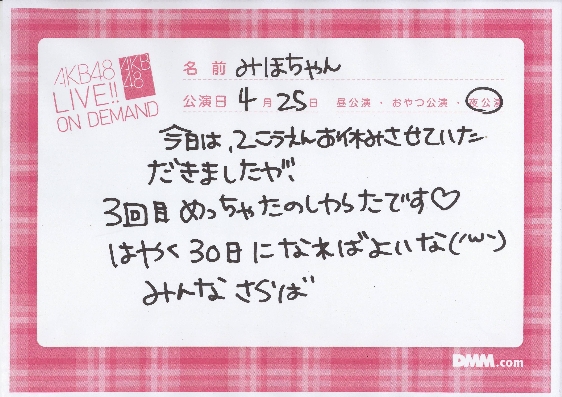 AKB48
LIVE!!
ON DEMAND
AKB
48
名前 みほちゃん
公演日 4月25日 昼公演・おやつ公演・夜公演
今日は、2こうえんお休みさせていた
だきましたが、
3回目めっちゃたのしかったです♡
はやく30日になればよいな(´ω`)
みんなさらば
DMM.com